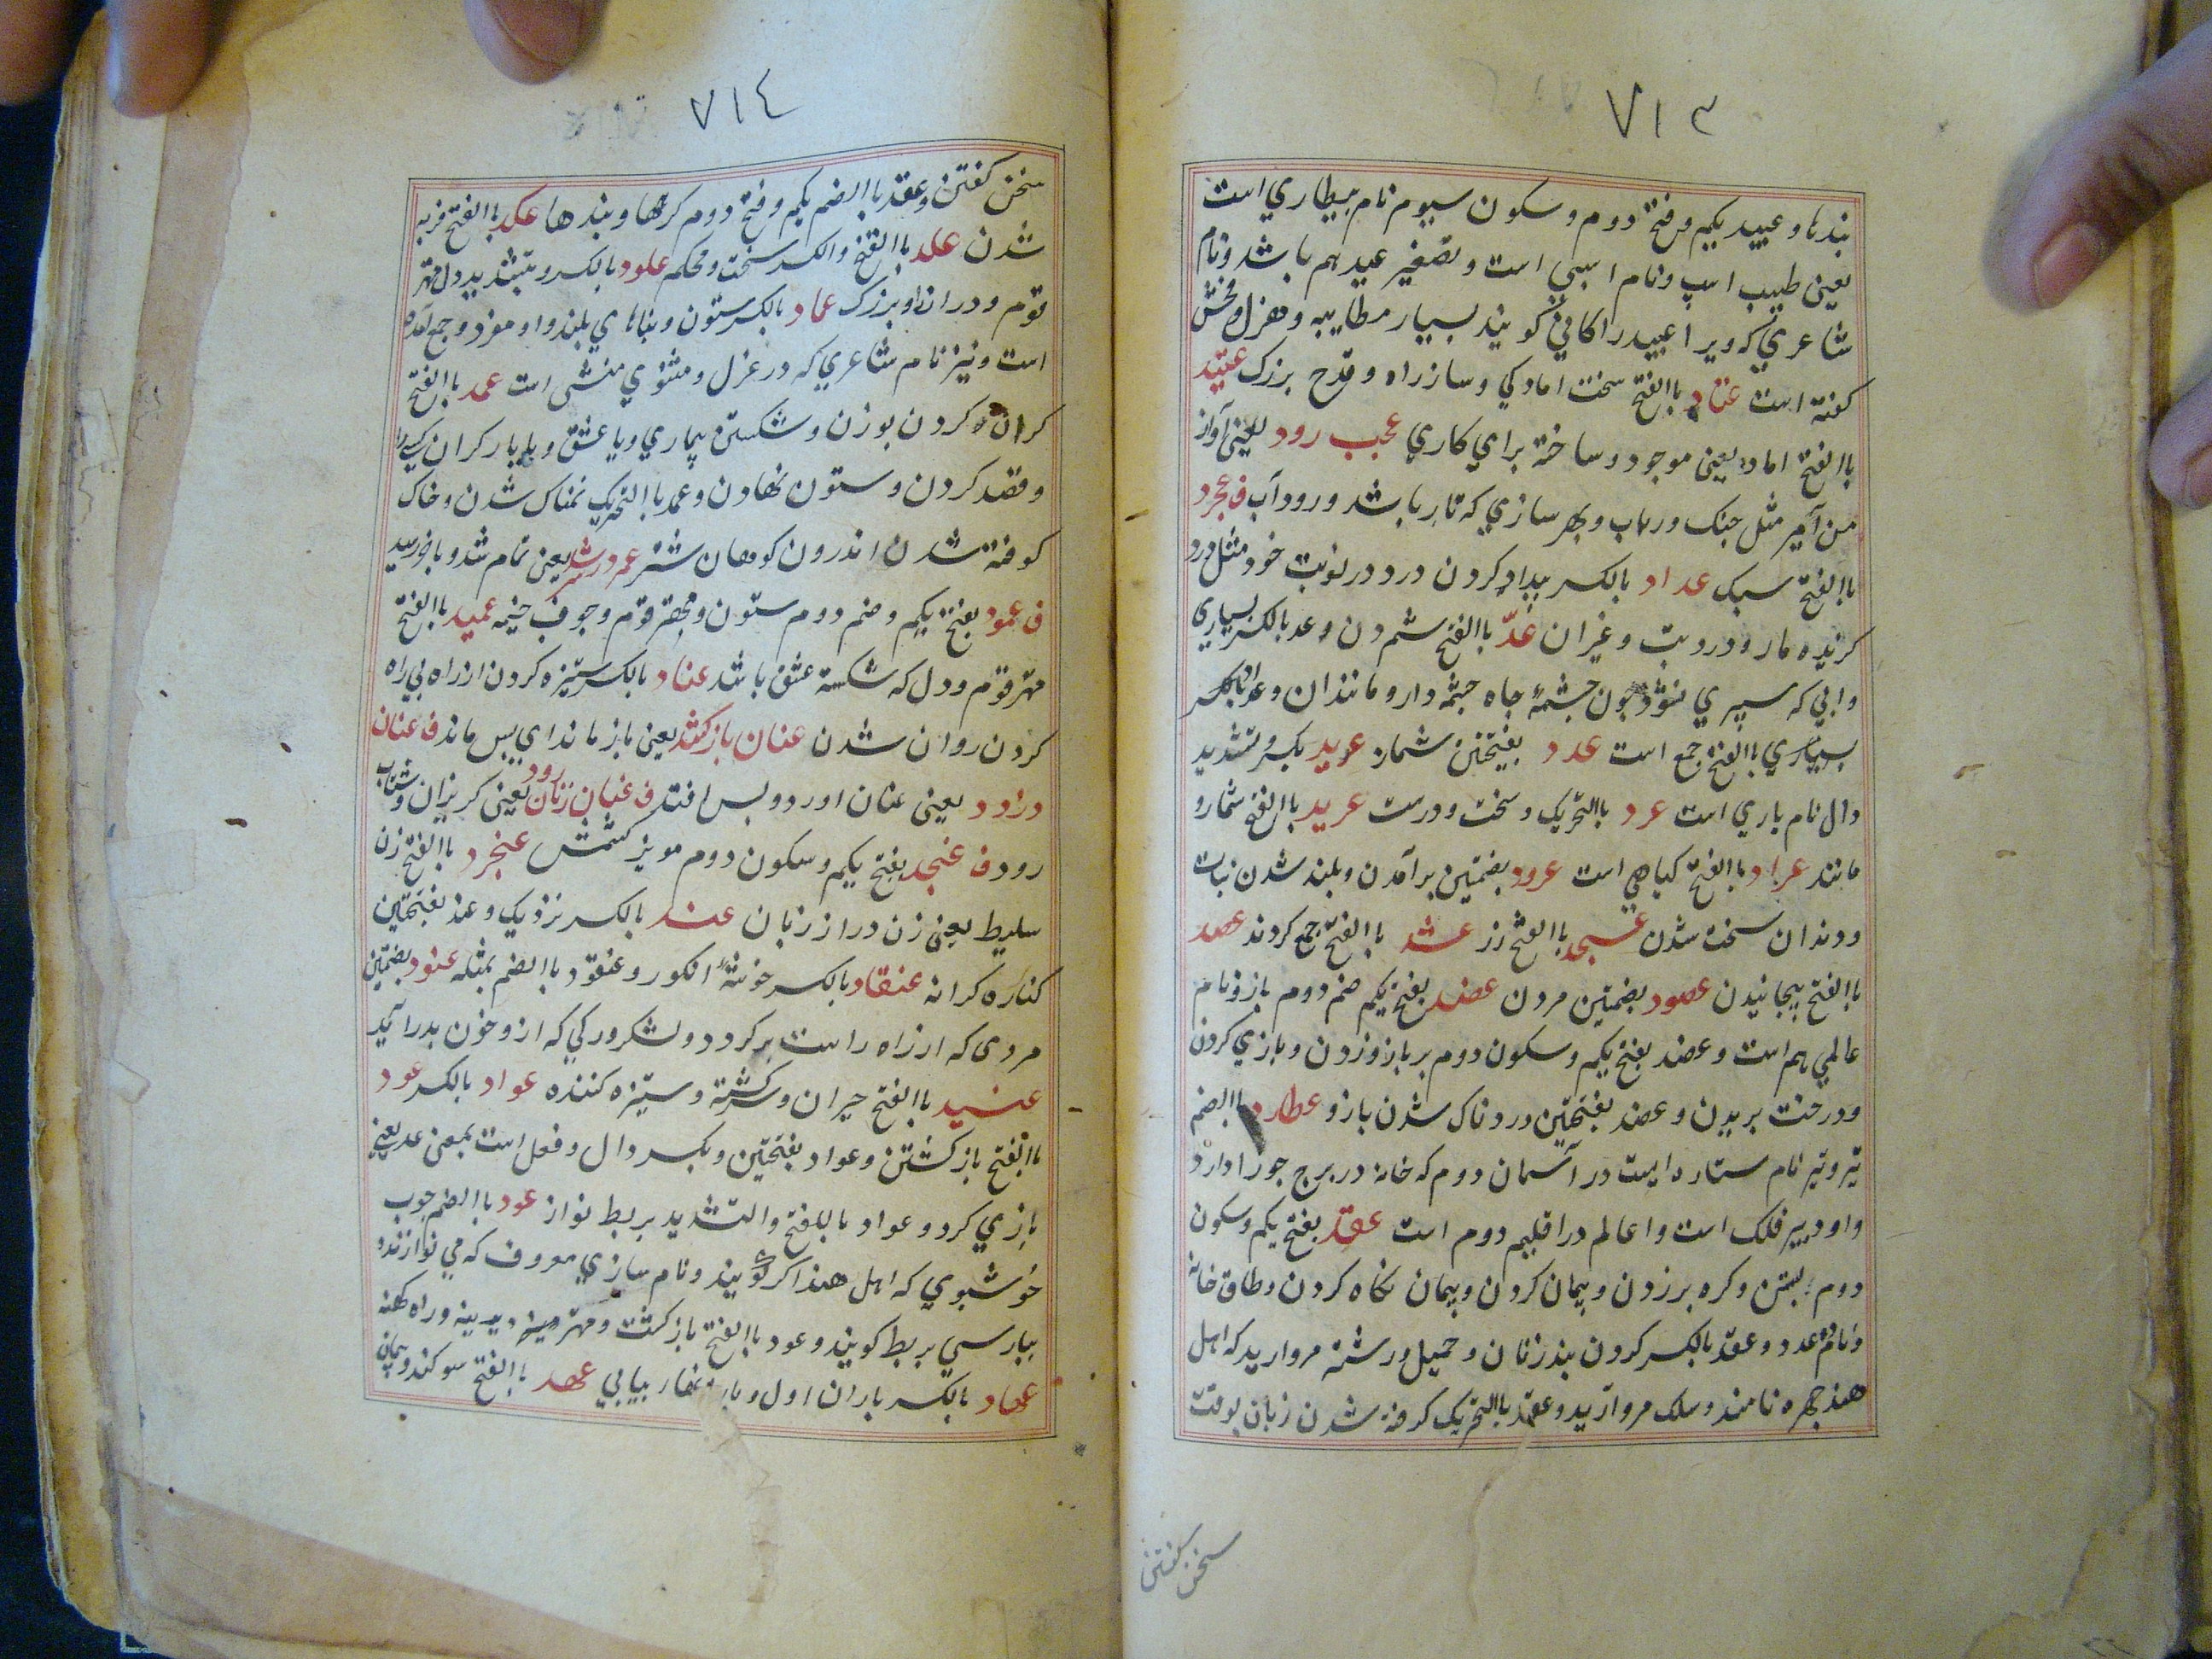 ۷۱۳
بندها و عبید یکم و فتح دوم و سکون سیوم نام بیطاری است
یعنی طبیب اسپ و نام اسبی است و تصغیر عبد هم باشد و نام
شاعری که ویرا عبید راکانی گویند بسیار مطایبه و هزل و فحش
کفته است عتاد باالفتح سخت امادکی و ساز راه و قدح بزرک عتید
باالفتح اماده یعنی موجود و ساخته برای کاری عجب رود یعنی آواز
من آمیر مثل جنک و رباب و بهر سازی که تار باشد و رود آب ف عجرد
باالفتح سبک عداد بالکسر بیداد کردن درد در نوبت خود مثل درد
کزیده مار و درد تب و غیر ان عدّ باالفتح شمردن و عد بالکسر بسیاری
و ابی که سپری نشود چون چشمهٔ چاه چشمه دار و مانند ان و عداد بالکسر
بسیاری باالفتح جمع است عدد بفتحتین شماره عوید بکسر و تشدید
دال نام باری است عرد باالتحریک و سخت و درست عرید باالفتح شمارو
مانند عراد باالفتح کیاهی است عرود بضمتین برآمدن و بلند شدن نبات
و دندان سخت شدن عسجد باالفتح زر عشد باالفتح جمع کردند عصد
باالفتح پیچانیدن عصود بضمتین مردن عضد بفتح یکم ضم دوم بازو نام
عالمی هم است و عضد بفتح یکم و سکون دوم بر بازو زدن و بازی کردن
و درخت بریدن و عضد بفتحتین دردناک شدن بازو عطارد باالضم
تیر و تیر نام ستاره ایست در آسمان دوم که خانه در برج جوزا دارد
و او دبیر فلک است و اعالم در اقلیم دوم است عقد بفتح یکم و سکون
دوم بستن و کره بر زدن و پیمان کردن و پیمان نکاه کردن و طاق خانه
و نام عدد و عقد بالکسر کردن بند زنان و حمیل و رشته مروارید که اهل
هند چهره نامند و سلک مروارید و عقد باالتحریک کرفته شدن زبان بوقت
سخن کفتن
۷۱٤
سخن کفتن و عقد باالضم یکم و فتح دوم کرهها و بندها عکد باالفتح فربه
شدن علد باالفتح و الکسر سخت و محکم علود بالکسر و بتشدید دل مهتر
قوم و دراز و بزرک عماد بالکسر ستون و بناهای بلند و او مفرد و جمع آمده
است و نیز نام شاعری که در غزل و مثنوی منشی است عمد باالفتح
کران کردن بوزن و شکستن بیماری و یا عشق و یا بار کران کسی را
و قصد کردن و ستون نهادن و عمد باالتحریک نمناک شدن و خاک
کوفته شدن اندرون کوهان شتر عمر درشد یعنی تمام شد و باخر رسید
ف عمود بفتح یکم و ضم دوم ستون و مهتر قوم و جوف خیمه عمید باالفتح
مهتر قوم و دل که شکسته عشق باشد عناد بالکسر ستیزه کردن از راه بی راه
کردن روان شدن عنان باز کشد یعنی باز ماند ای پس ماند ف عنان
درزود یعنی عنان اورد و پس افتد ف عنان زنان رود یعنی کریزان و شتاب
رود ف عنجد بفتح یکم و سکون دوم مویز کشمش عنجرد باالفتح زن
سلیط یعنی زن دراز زبان عند بالکسر نزدیک و عند بفتحتین
کناره کرانه عنقاد بالکسر خوشهٔ انکور و عنقود باالضم بمثله عنود بضمتین
مردی که از راه راست برکردد و لشکر و رکی که ازو خون بدر آید
عنید باالفتح حیران و سرکشته و ستیزه کننده عواد بالکسر عود
باالفتح باز کشتن و عواد بفتحتین و بکسر دال و فعل است بمعنی عد یعنی
بازی کرد و عواد باالفتح والتشدید بربط نواز عود باالضم چوب
خوشبوی که اهل هند اکر کویند و نام سازی معروف که می نوازند و
بپارسی بربط کویند و عود باالفتح باز کشت و مهتر دیرینه و راه کهنه
عهاد بالکسر باران اول و بهار بیابی عهد باالفتح سوکند و پیمان